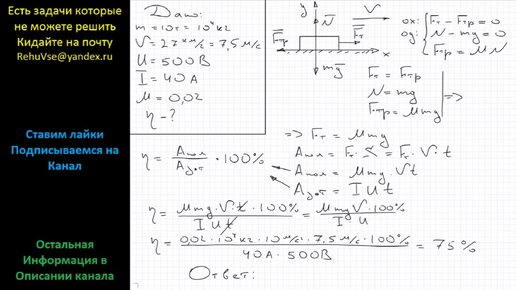 Есть задачи которые
не можете решить
Кидайте на почту
RehuVse@yandex.ru
Ставим лайки
Подписываемся на
Канал
Остальная
Информация в
Описании канала
Дано:
m = 10т = 10⁴ кг
V = 27 км/с = 7,5 м/с
U = 500В
I = 40А
μ = 0,02
η - ?
y V
N
Fтр Fт
x
mg
ox: { Fт - Fтр = 0
oy: { N - mg = 0
{ Fтр = μN
Fт = Fтр
N = mg
Fтр = μmg | =>
=> Fт = μmg
η = Aпол / Aзат · 100%
Aпол = Fт · S = Fт · V · t
Aпол = μmg · Vt
Aзат = I U t
η = μmg · V · t · 100% / I U t = μmg V · 100% / I U
η = 0,02 · 10⁴ кг · 10 м/с² · 7,5 м/с · 100% / 40А · 500В = 75%
Ответ: